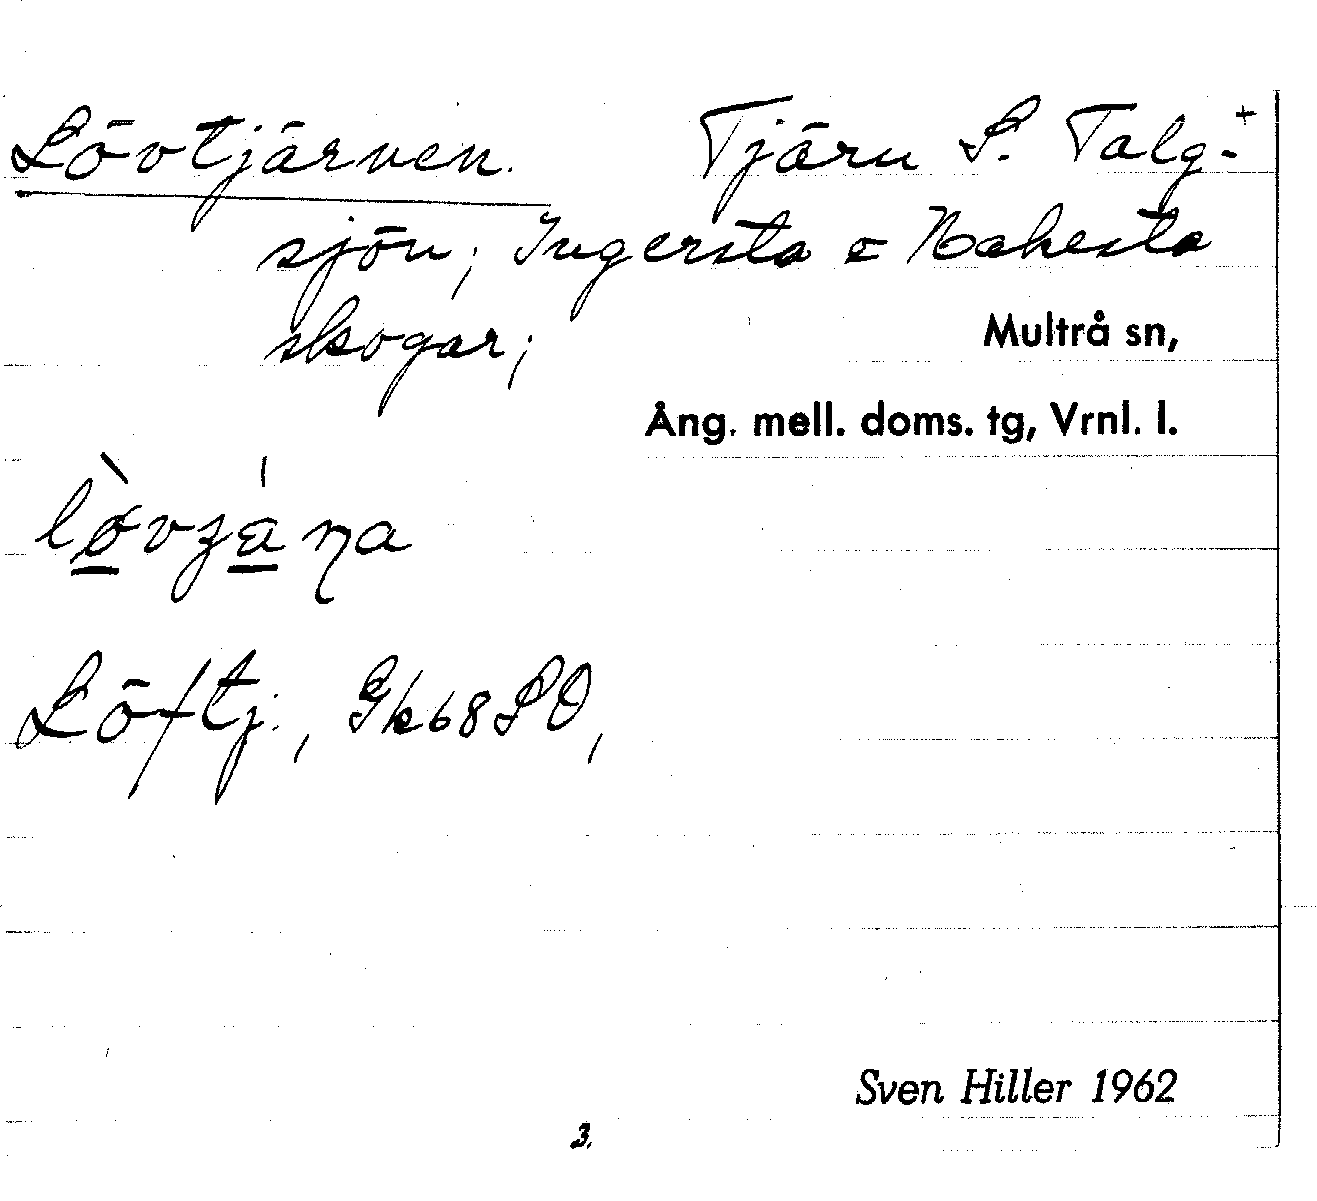 Lövtjärnen. Tjärn S. Talg- +
sjön; Ingersta o Nahesta
skogar;
Multrå sn,
Ång. mell. doms. tg, Vrnl. l.
Löftj., Gk68SO,
Sven Hiller 1962
3.